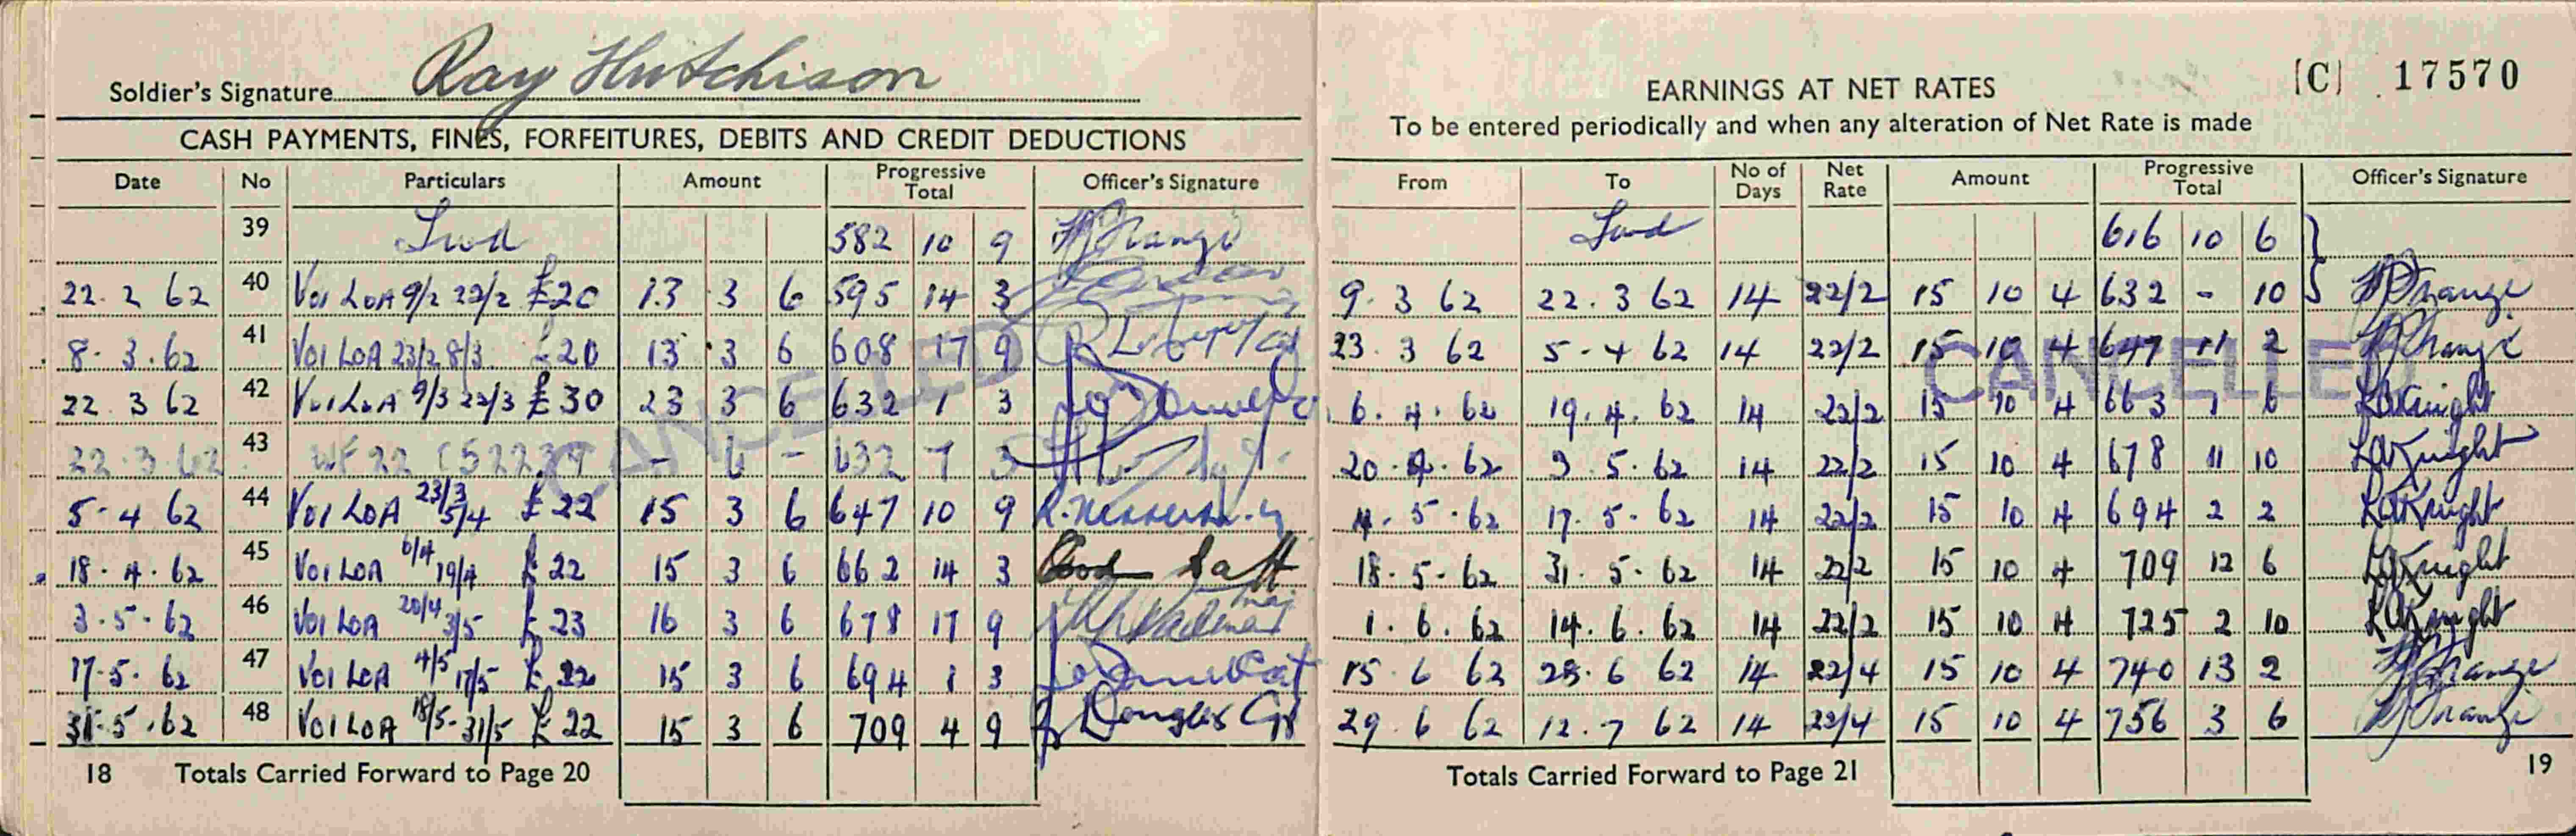 Soldier's Signature Ray Hutchison
CASH PAYMENTS, FINES, FORFEITURES, DEBITS AND CREDIT DEDUCTIONS
Date No Particulars Amount Progressive Total Officer's Signature
39 582 10 9
22. 2 62 40 Voi LOA 9/2 22/2 £20 13 3 6 595 14 3
8. 3. 62 41 Voi LOA 23/2 8/3 £20 13 3 6 608 17 9
22 3 62 42 Voi LOA 9/3 22/3 £30 23 3 6 632 1 3
22. 3. 62 43 - 6 - 632 7 3
5. 4 62 44 Voi LOA 23/3 5/4 £22 15 3 6 647 10 9
18. 4. 62 45 Voi LOA 6/4 19/4 £22 15 3 6 662 14 3
3. 5. 62 46 Voi LOA 20/4 3/5 £23 16 3 6 678 17 9
17. 5. 62 47 Voi LOA 4/5 17/5 £22 15 3 6 694 1 3
31. 5. 62 48 Voi LOA 18/5 - 31/5 £22 15 3 6 709 4 9 Douglas
CANCELLED
18 Totals Carried Forward to Page 20
EARNINGS AT NET RATES
[C] 17570
To be entered periodically and when any alteration of Net Rate is made
From To No of Days Net Rate Amount Progressive Total Officer's Signature
616 10 6
9. 3 62 22. 3 62 14 22/2 15 10 4 632 - 10
23. 3 62 5 - 4 62 14 22/2 15 10 4 647 11 2
6. 4. 62 19. 4. 62 14 22/2 15 10 4 663 1 6 Knight
20. 4. 62 3. 5. 62 14 22/2 15 10 4 678 11 10 Knight
4. 5. 62 17. 5. 62 14 22/2 15 10 4 694 2 2 Knight
18. 5. 62 31. 5. 62 14 22/2 15 10 4 709 12 6 Knight
1. 6. 62 14. 6. 62 14 22/2 15 10 4 725 2 10 Knight
15. 6 62 28. 6 62 14 22/4 15 10 4 740 13 2
29. 6 62 12. 7 62 14 22/4 15 10 4 756 3 6
CANCELLED
Totals Carried Forward to Page 21 19